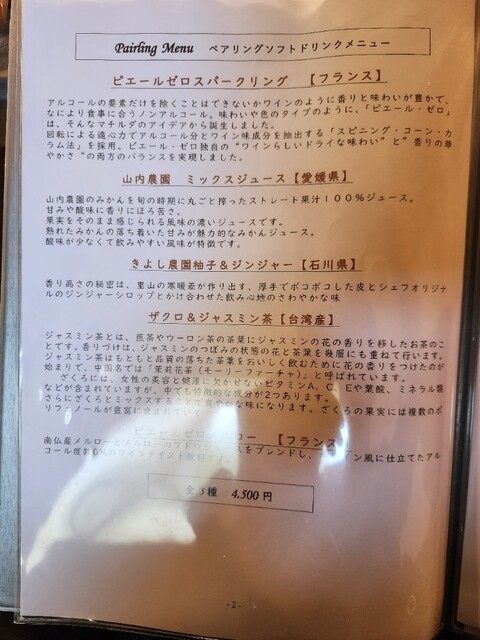 Pairling Menu ペアリングソフトドリンクメニュー
ピエールゼロスパークリング 【フランス】
アルコールの要素だけを除くことはできないかワインのように香りと味わいが豊かで、
なにより食事に合うノンアルコール。味わいや色のタイプのように、「ピエール・ゼロ」
は、そんなマチルダのアイデアから誕生しました。
回転による遠心力でアルコール分とワイン味成分を抽出する「スピニング・コーン・カ
ラム法」を採用。ピエール・ゼロ独自の“ワインらしいドライな味わい”と“香りの華
やかさ”の両方のバランスを実現しました。
山内農園 ミックスジュース【愛媛県】
山内農園のみかんを旬の時期に丸ごと搾ったストレート果汁100%ジュース。
甘みや酸味に香りにほろ苦さ。
果実をそのまま感じられる風味の濃いジュースです。
熟れたみかんの落ち着いた甘みが魅力的なみかんジュース。
酸味が少なくて飲みやすい風味が特徴です。
きよし農園柚子&ジンジャー【石川県】
香り高さの秘密は、里山の寒暖差が作り出す、厚手でボコボコした皮とシェフオリジナ
ルのジンジャーシロップとかけ合わせた飲み心地のさわやかな味
ザクロ&ジャスミン茶【台湾産】
ジャスミン茶とは、煎茶やウーロン茶の茶葉にジャスミンの花の香りを移したお茶のこ
とです。香りづけは、ジャスミンのつぼみの状態の花と茶葉を幾層にも重ねて行います。
ジャスミン茶はもともと品質の落ちた茶葉をおいしく飲むために花の香りをつけたのが
始まりで、中国名では「茉莉花茶(モーリーファーチャ)」と呼ばれています。
ざくろには、女性の美容と健康に欠かせないビタミンA、C、Eや葉酸、ミネラル類
などが含まれていますが、中でも特徴的な成分が2つあります。
さらにざくろとミックスすることで爽やかな味になります。ざくろの果実には複数のポ
リフェノールが豊富に含まれてい
【フランス】
南仏産メルローとメルローの をブレンドし、 風に仕立てたアル
コール度数0%のワインテイスト飲料です。
全5種 4.500円
-2-